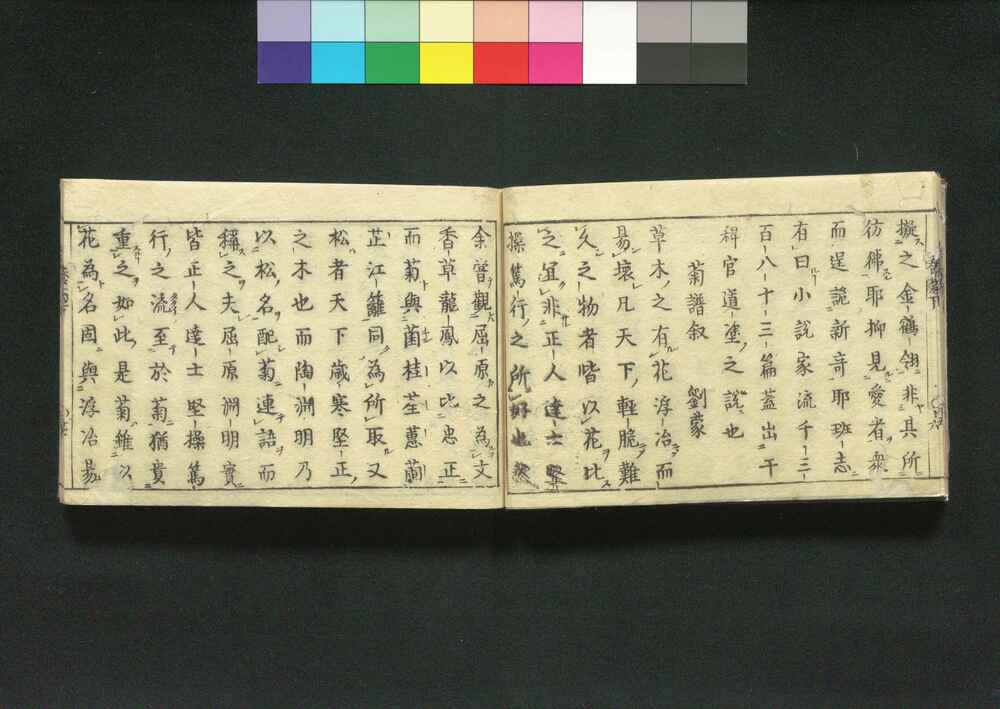 擬之金鶴翎非其所
彷彿耶抑見愛者衆
而逞詭新奇耶班志
有曰小説家流千三
百八十三篇蓋出于
稗官道塗之説也
菊譜叙　劉蒙
草木之有花浮冶而
易壊凡天下軽脆難
久之物者皆以花比
之宜非正人達士堅
操篤行之所好也然
余嘗觀屈原之為文
香草龍鳳以比忠正
而菊與菌桂荃蕙蘭
芷江籬同為所取又
松者天下歳寒堅正
之木也而陶淵明乃
以松名配菊連語而
稱之夫屈原淵明實
皆正人達士堅操篤
行之流至於菊猶貴
重之如此是菊雖以
花為名固與浮冶易